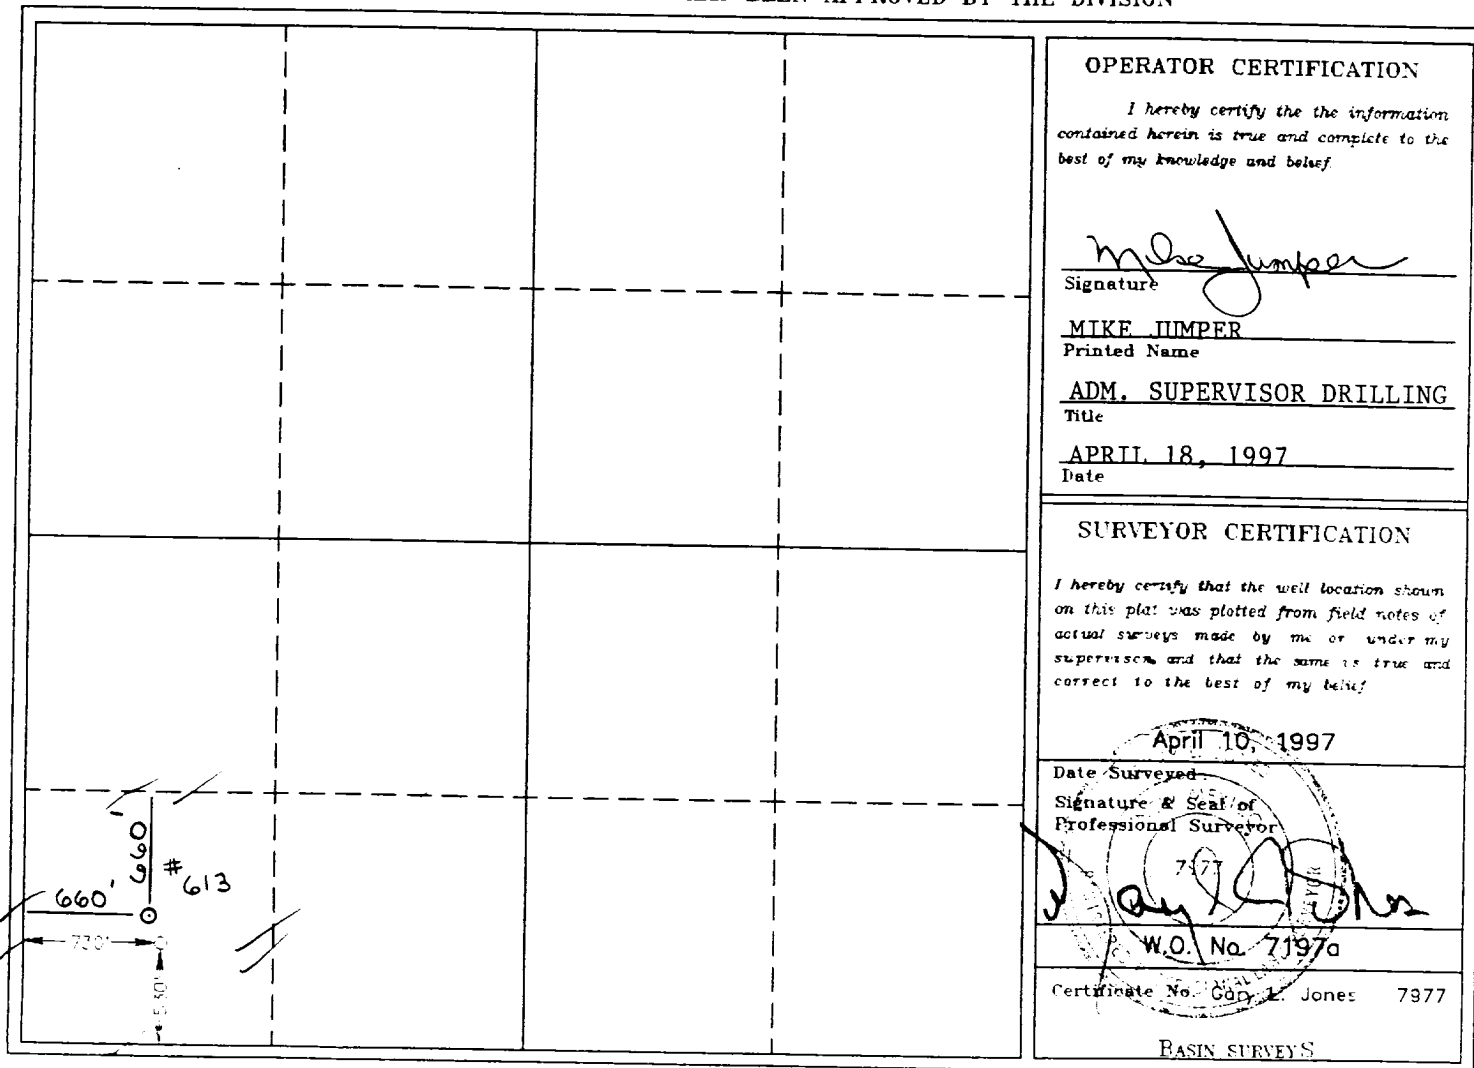 BEEN APPROVED BY THE DIVISION
OPERATOR CERTIFICATION
I hereby certify the the information
contained herein is true and complete to the
best of my knowledge and belief.
Mike Jumper
Signature
MIKE JUMPER
Printed Name
ADM. SUPERVISOR DRILLING
Title
APRIL 18, 1997
Date
SURVEYOR CERTIFICATION
I hereby certify that the well location shown
on this plat was plotted from field notes of
actual surveys made by me or under my
supervison, and that the same is true and
correct to the best of my belief.
April 10, 1997
Date Surveyed
Signature & Seal of
Professional Surveyor
7977
W.O. No. 7197a
Certificate No. Gary L. Jones 7977
BASIN SURVEYS
660'
#613
660'
730'
530'